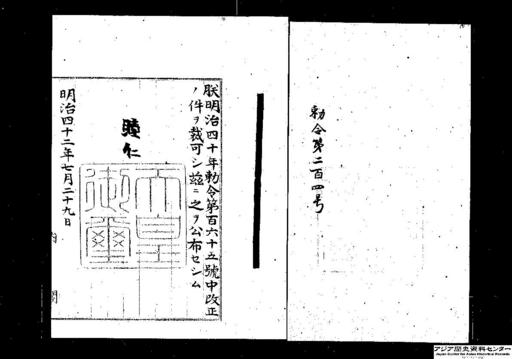 勅令第二百四号
朕明治四十年勅令第百六十五號中改正
ノ件ヲ裁可シ茲ニ之ヲ公布セシム
睦仁
天皇御璽
明治四十二年七月二十九日
内閣
アジア歴史資料センター
Japan Center for Asian Historical Records